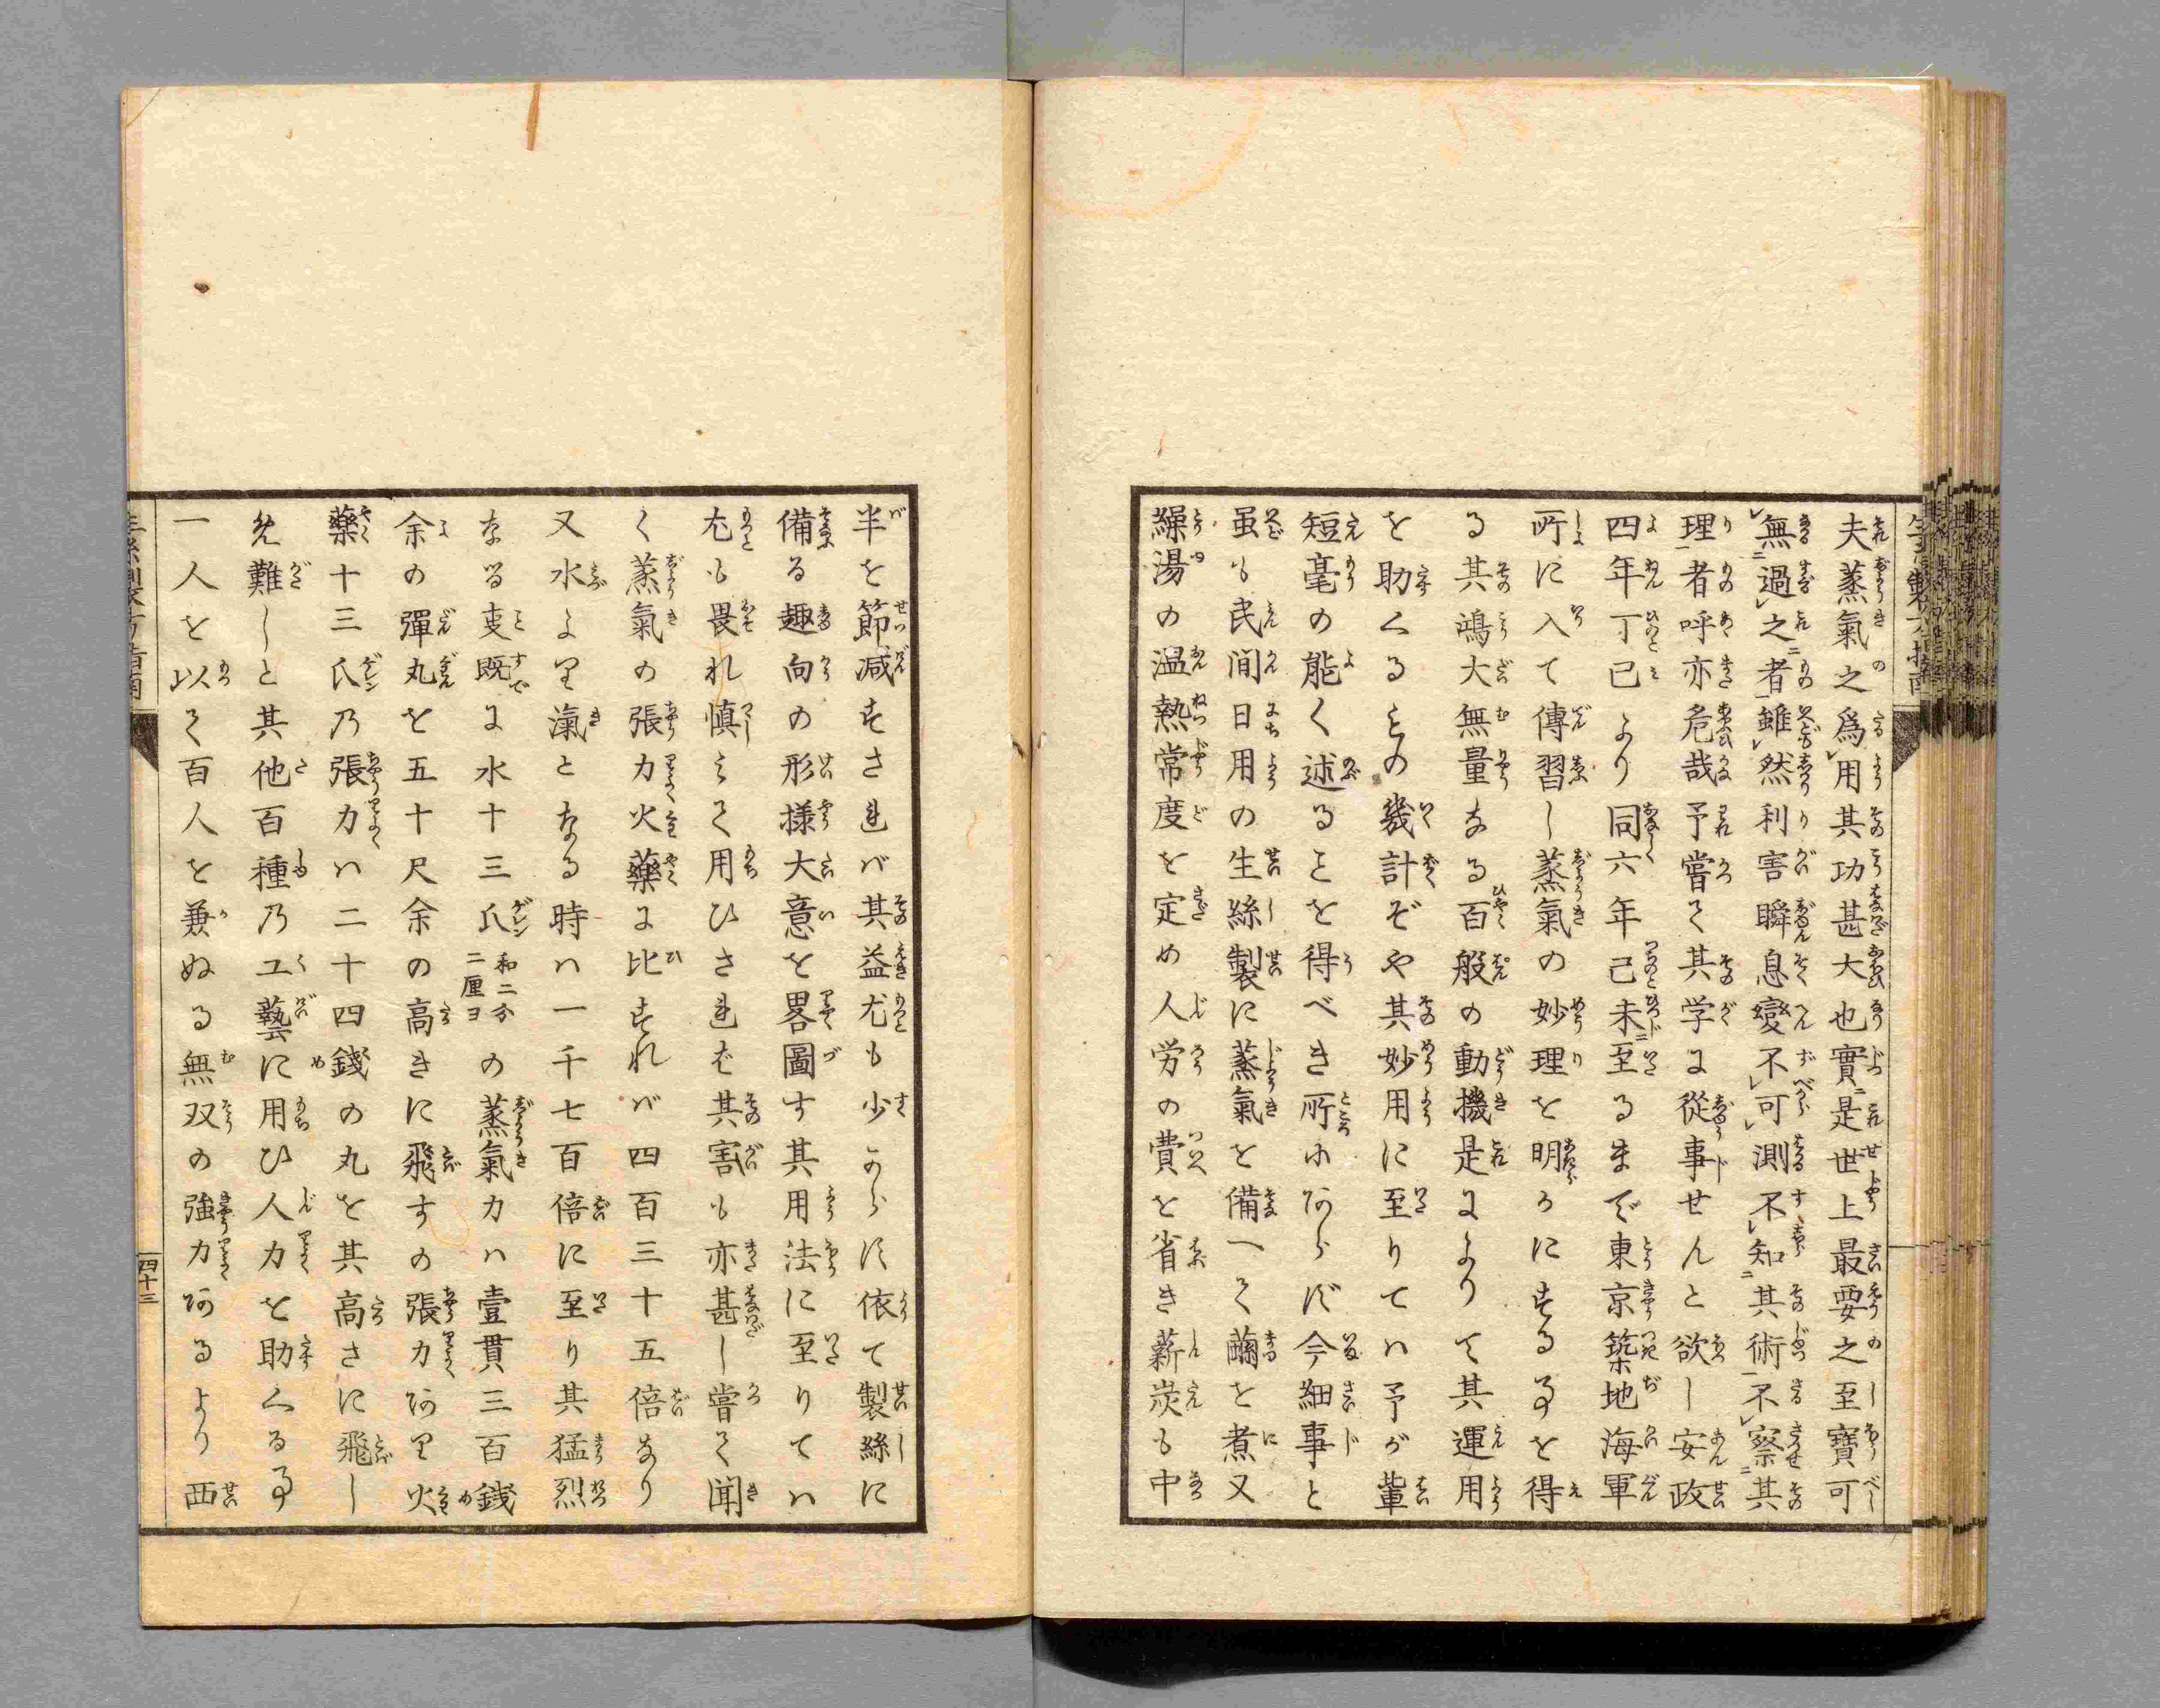 夫蒸氣之爲用其功甚大也實是世上最要之至寶可
無過之者雖然利害瞬息變不可測不知其術不察其
理者呼亦危哉予嘗て其学に從事せんと欲し安政
四年丁巳より同六年己未至るまで東京築地海軍
所に入て傳習し蒸氣の妙理を明かにするヿを得
る其鴻大無量なる百般の動機是によりて其運用
を助くるもの幾計ぞや其妙用に至りてハ予が輩
短毫の能く述ることを得べき所にあらず今細事と
虽も民间日用の生絲製に蒸氣を備へて繭を煮又
繰湯の温熱常度を定め人労の費を省き薪炭も中
生糸製方指南
半を節减すされバ其益尤も少からに依て製絲に
備る趣向の形様大意を畧圖す其用法に至りてハ
尤も畏れ慎ミて用ひされば其割も亦甚し嘗て聞
く蒸氣の張力火藥に比すれバ四百三十五倍なり
又水より滊となる時ハ一千七百倍に至り其猛烈
なる叓既に水十三氏和二分二厘ヨの蒸氣力ハ壹貫三百銭
余の彈丸を五十尺余の高きに飛すの張力あり火
藥十三氏乃張力ハ二十四錢の丸を其高さに飛し
免難しと其他百種乃工藝に用ひ人力を助くるヿ
一人を以て百人を兼ぬる無双の強力あるより西
生絲製方指南
四十三